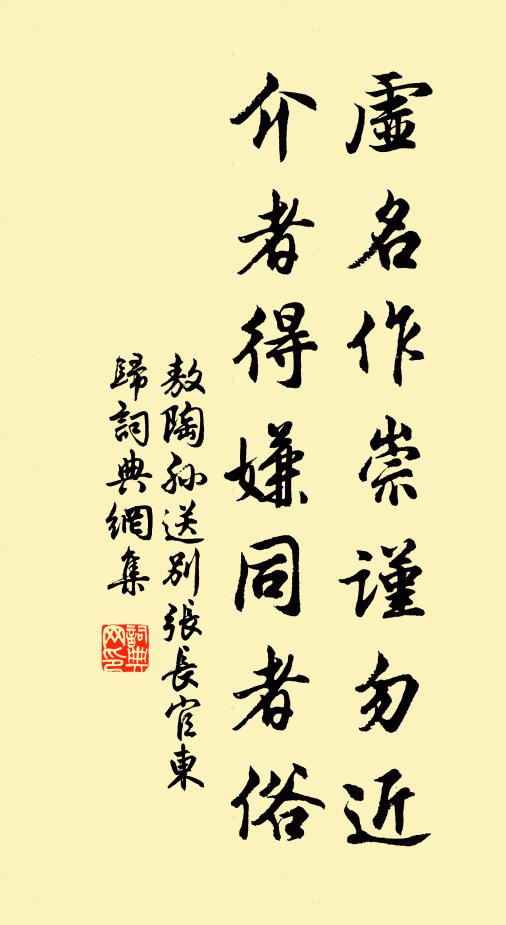 虛名作崇謹勿近
介者得嫌同者俗
敖陶孙送别張長官東
歸詞典網集
詞典
网印